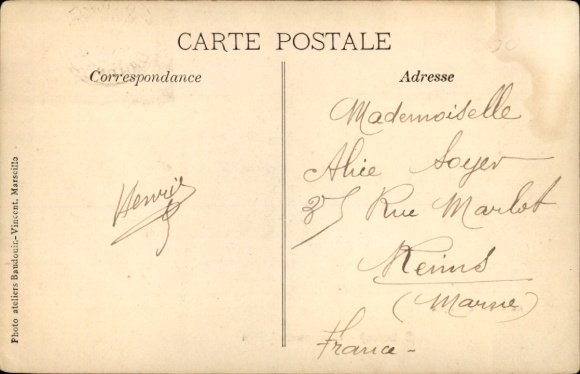 CARTE POSTALE
Correspondance
Adresse
Mademoiselle
Alice Soyer
37 Rue Marlot
Reims
(Marne)
France -
Henri
Photo ateliers Baudouin-Vincent, Marseille